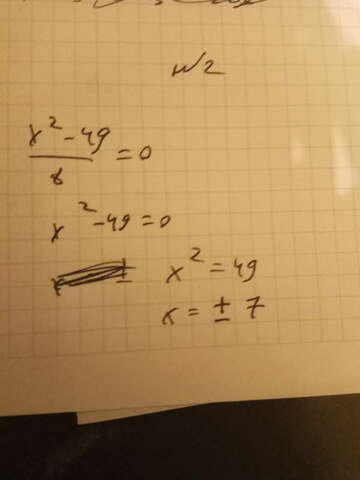 №2
x² - 49
/ 8 = 0
x² - 49 = 0
x² = 49
x = ± 7